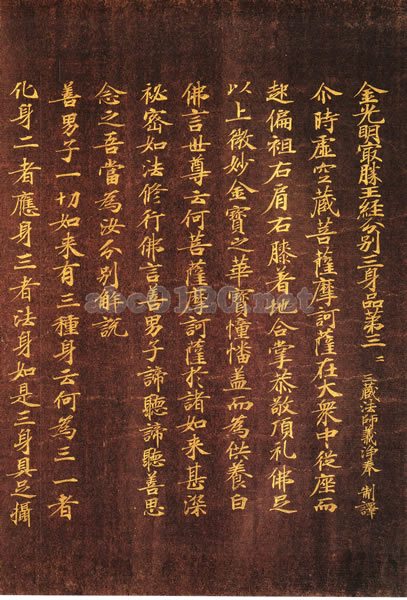 金光明最勝王經分別三身品第三 二 三藏法師義淨奉 制譯
尒時虛空藏菩薩摩訶薩在大衆中從座而
起偏袒右肩右膝著地合掌恭敬頂礼佛足
以上微妙金寶之華寶幢幡蓋而為供養白
佛言世尊云何菩薩摩訶薩於諸如来甚深
祕密如法修行佛言善男子諦聽諦聽善思
念之吾當為汝分別解說
善男子一切如来有三種身云何為三一者
化身二者應身三者法身如是三身具足攝
abc0120.net